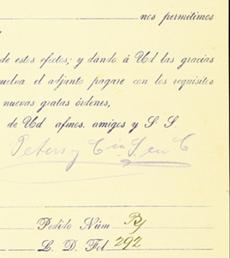 nos permitimos
de estos efectos; y dándo á Ud las gracias
uelva el adjunto pagare con los requisitos
nuevas gratas órdenes,
de Ud afmos. amigos y S. S.
Peters y Cia
Pedido Núm
L. D. Fol 292